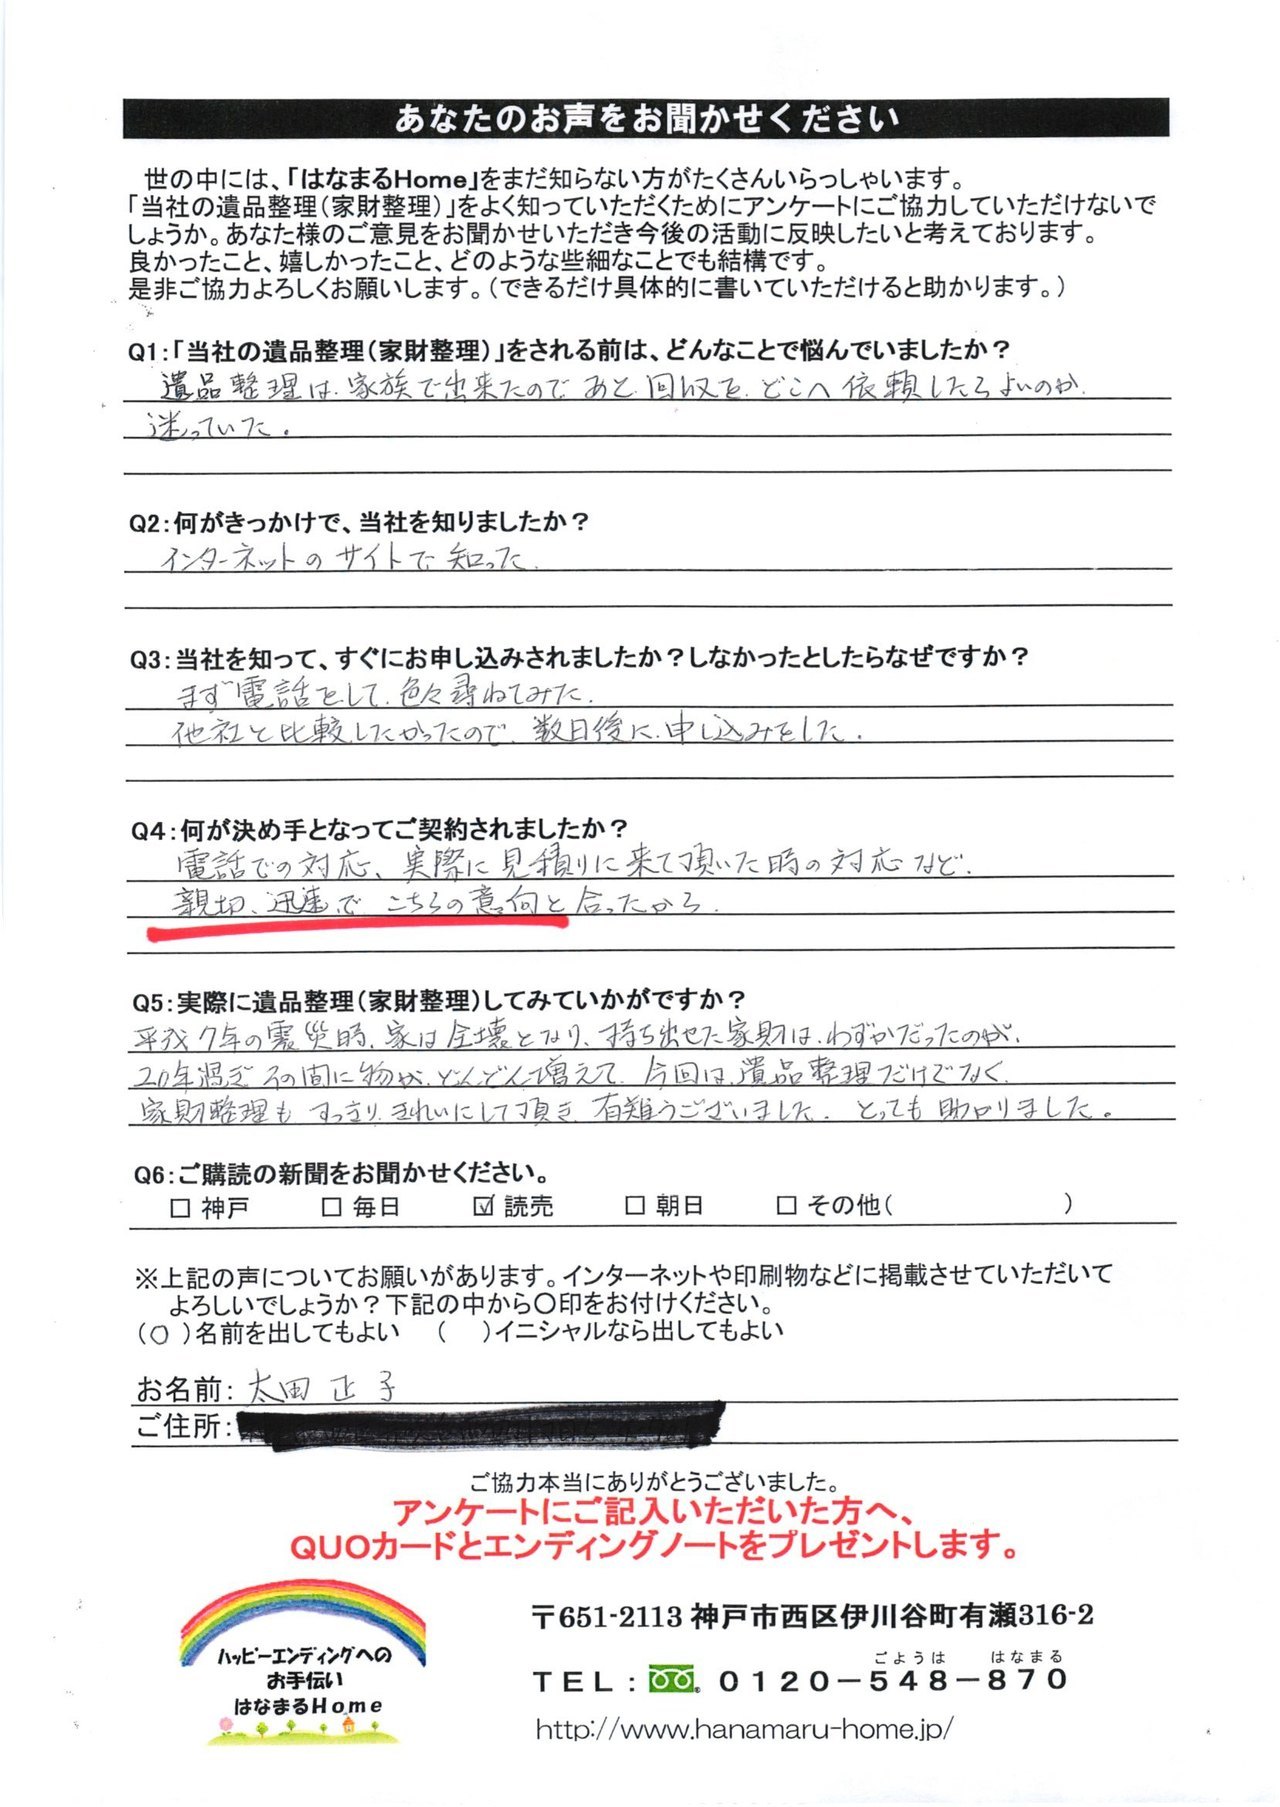 あなたのお声をお聞かせください
世の中には、「はなまるHome」をまだ知らない方がたくさんいらっしゃいます。
「当社の遺品整理(家財整理)」をよく知っていただくためにアンケートにご協力していただけないで
しょうか。あなた様のご意見をお聞かせいただき今後の活動に反映したいと考えております。
良かったこと、嬉しかったこと、どのような些細なことでも結構です。
是非ご協力よろしくお願いします。(できるだけ具体的に書いていただけると助かります。)
Q1:「当社の遺品整理(家財整理)」をされる前は、どんなことで悩んでいましたか?
遺品整理は、家族で出来たので あと、回収を、どこへ依頼したらよいのか、
迷っていた。
Q2:何がきっかけで、当社を知りましたか?
インターネットのサイトで知った。
Q3:当社を知って、すぐにお申し込みされましたか?しなかったとしたらなぜですか?
まず電話をして、色々尋ねてみた。
他社と比較したかったので、数日後に、申し込みをした。
Q4:何が決め手となってご契約されましたか?
電話での対応、実際に見積りに来て頂いた時の対応など、
親切、迅速で こちらの意向と合ったから。
Q5:実際に遺品整理(家財整理)してみていかがですか?
平成7年の震災時、家は全壊となり、持ち出せた家財は、わずかだったのが、
20年過ぎ その間に物が、どんどん増えて、今回は、遺品整理だけでなく、
家財整理も すっきり、きれいにして頂き、有難うございました。とっても助かりました。
Q6:ご購読の新聞をお聞かせください。
□ 神戸 □ 毎日 ☑ 読売 □ 朝日 □ その他( )
※上記の声についてお願いがあります。インターネットや印刷物などに掲載させていただいて
よろしいでしょうか?下記の中から〇印をお付けください。
(○)名前を出してもよい ( )イニシャルなら出してもよい
お名前: 太田 正子
ご住所:
ご協力本当にありがとうございました。
アンケートにご記入いただいた方へ、
QUOカードとエンディングノートをプレゼントします。
ハッピーエンディングへの
お手伝い
はなまるHome
〒651-2113 神戸市西区伊川谷町有瀬316-2
ごようは はなまる
TEL: 0120-548-870
http://www.hanamaru-home.jp/